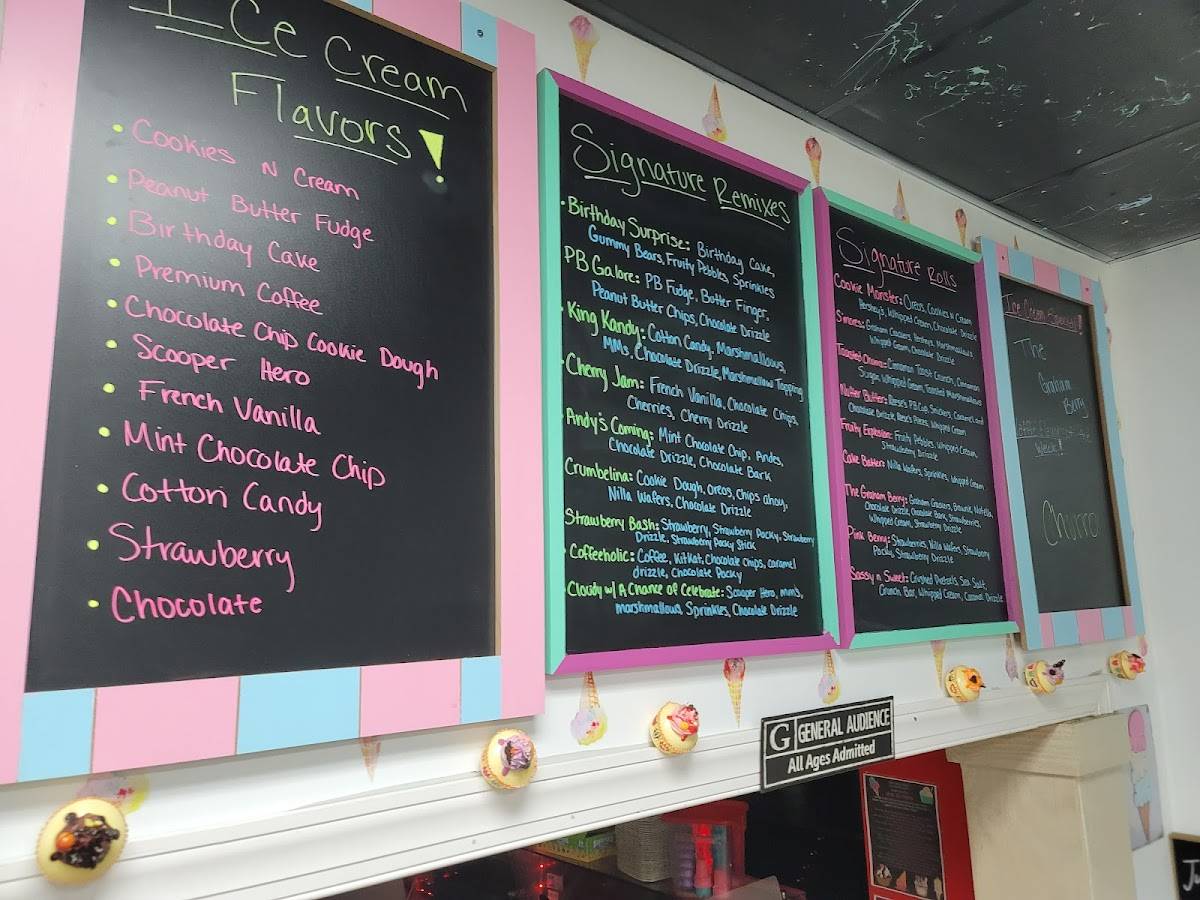 Ice Cream
Flavors!
• Cookies N Cream
• Peanut Butter Fudge
• Birthday Cake
• Premium Coffee
• Chocolate Chip Cookie Dough
• Scooper Hero
• French Vanilla
• Mint Chocolate Chip
• Cotton Candy
• Strawberry
• Chocolate
Signature Remixes
• Birthday Surprise: Birthday Cake,
Gummy Bears, Fruity Pebbles, Sprinkles
PB Galore: PB Fudge, Butter Finger,
Peanut Butter Chips, Chocolate Drizzle
King Kandy: Cotton Candy, Marshmallows,
MMs, Chocolate Drizzle, Marshmallow Topping
Cherry Jam: French Vanilla, Chocolate Chips,
Cherries, Cherry Drizzle
Andy's Coming: Mint Chocolate Chip, Andes,
Chocolate Drizzle, Chocolate Bark
Crumbelina: Cookie Dough, Oreos, Chips ahoy,
Nilla Wafers, Chocolate Drizzle
Strawberry Bash: Strawberry, Strawberry Pocky, Strawberry
Drizzle, Strawberry Pocky Stick
Coffeeholic: Coffee, KitKat, Chocolate chips, caramel
drizzle, Chocolate Pocky
Cloudy w/ A Chance of Celebrate: Scooper Hero, mm's,
marshmallows, Sprinkles, Chocolate Drizzle
Signature Rolls
Cookie Monster: Oreos, Cookies N Cream
Hershey's, Whipped Cream, Chocolate Drizzle
S'mores: Graham Crackers, Hersheys, Marshmallows
Whipped Cream, Chocolate Drizzle
Toasted Cinnamon Toast Crunch, Cinnamon
Sugar, Whipped Cream, Toasted Marshmallows
Nutter Butter: Reese's PB Cup, Snickers, Caramel and
Chocolate Drizzle, Reese's Pieces, Whipped Cream
Fruity Explosion: Fruity Pebbles, Whipped Cream,
Strawberry Drizzle
Cake Batter: Nilla Wafers, Sprinkles, Whipped Cream
The Graham Berry: Graham Crackers, Brownie, Nutella,
Chocolate Drizzle, Chocolate Bark, Strawberries,
Whipped Cream, Strawberry Drizzle
Pink Berry: Strawberries, Nilla Wafers, Strawberry
Pocky, Strawberry Drizzle
Sassy n Sweet: Crushed Pretzels, Sea Salt,
Crunch Bar, Whipped Cream, Caramel Drizzle
Ice Cream
The
Graham
Berry
Week!
Churro
G GENERAL AUDIENCE
All Ages Admitted